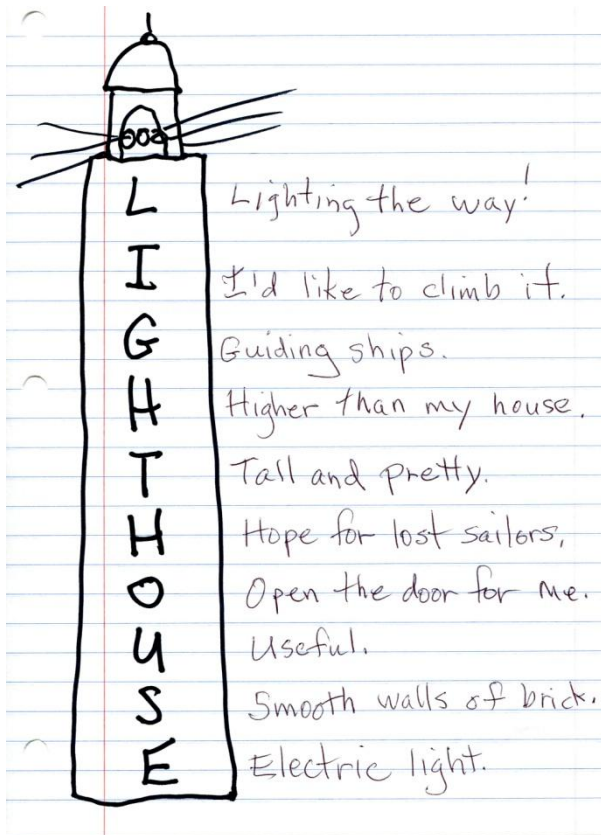 L Lighting the way!
I I'd like to climb it.
G Guiding ships.
H Higher than my house.
T Tall and pretty.
H Hope for lost sailors.
O Open the door for me.
U Useful.
S Smooth walls of brick.
E Electric light.